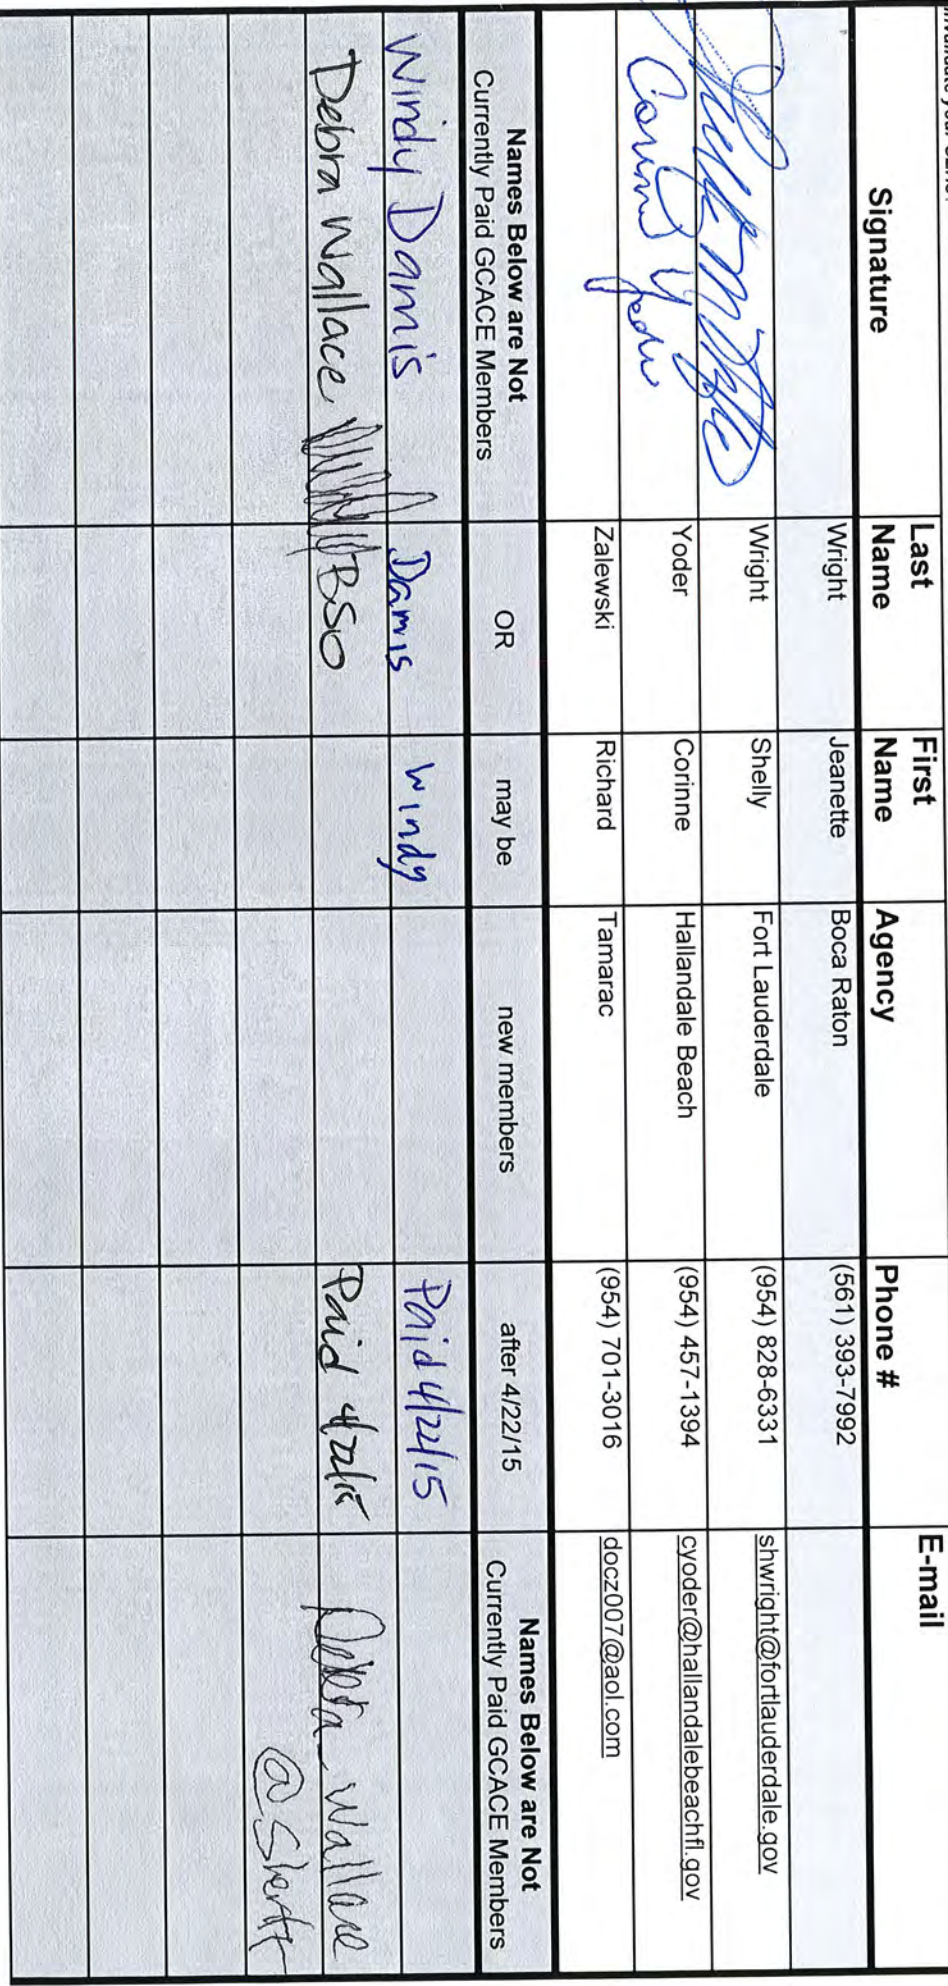 Signature Last Name First Name Agency Phone # E-mail
Wright Jeanette Boca Raton (561) 393-7992
Wright Shelly Fort Lauderdale (954) 828-6331 shwright@fortlauderdale.gov
Corinne Yoder Yoder Corinne Hallandale Beach (954) 457-1394 cyoder@hallandalebeachfl.gov
Zalewski Richard Tamarac (954) 701-3016 docz007@aol.com
Names Below are Not Currently Paid GCACE Members OR may be new members after 4/22/15 Names Below are Not Currently Paid GCACE Members
Windy Damis Damis Windy Paid 4/22/15
Debra Wallace BSO Paid 4/22/15 Debra_Wallace
@Sheriff